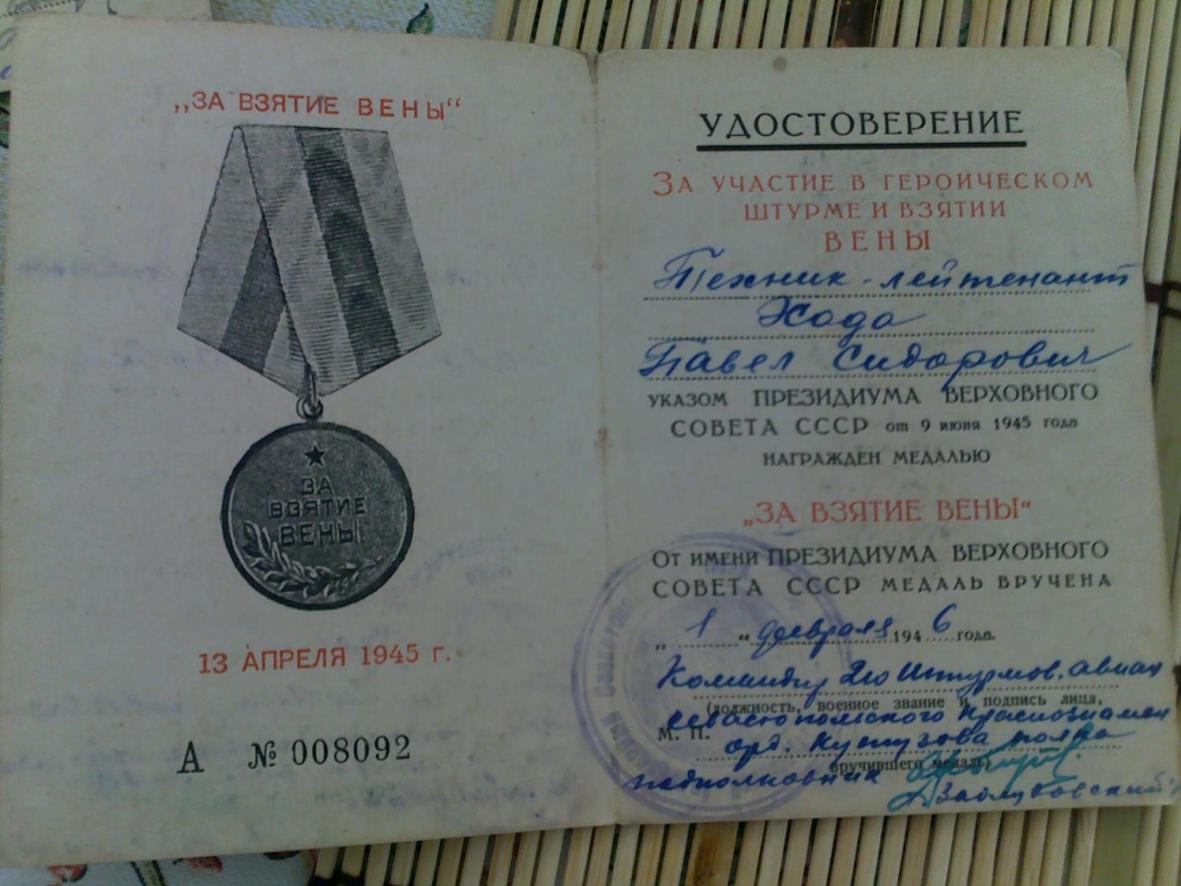 „ЗА ВЗЯТИЕ ВЕНЫ“
ЗА
ВЗЯТИЕ
ВЕНЫ
13 АПРЕЛЯ 1945 г.
А № 008092
УДОСТОВЕРЕНИЕ
ЗА УЧАСТИЕ В ГЕРОИЧЕСКОМ
ШТУРМЕ И ВЗЯТИИ
ВЕНЫ
Техник-лейтенант
Хода
Павел Сидорович
УКАЗОМ ПРЕЗИДИУМА ВЕРХОВНОГО
СОВЕТА СССР от 9 июня 1945 года
НАГРАЖДЕН МЕДАЛЬЮ
„ЗА ВЗЯТИЕ ВЕНЫ“
ОТ ИМЕНИ ПРЕЗИДИУМА ВЕРХОВНОГО
СОВЕТА СССР МЕДАЛЬ ВРУЧЕНА
„ 1 “ февраля 1946 года.
Командир 210 Штурмов. авиац
(должность, военное звание и подпись лица,
Севастопольского Краснознамен
М. П.
орд. Кутузова полка
вручившего медаль)
подполковник
Заблуковский